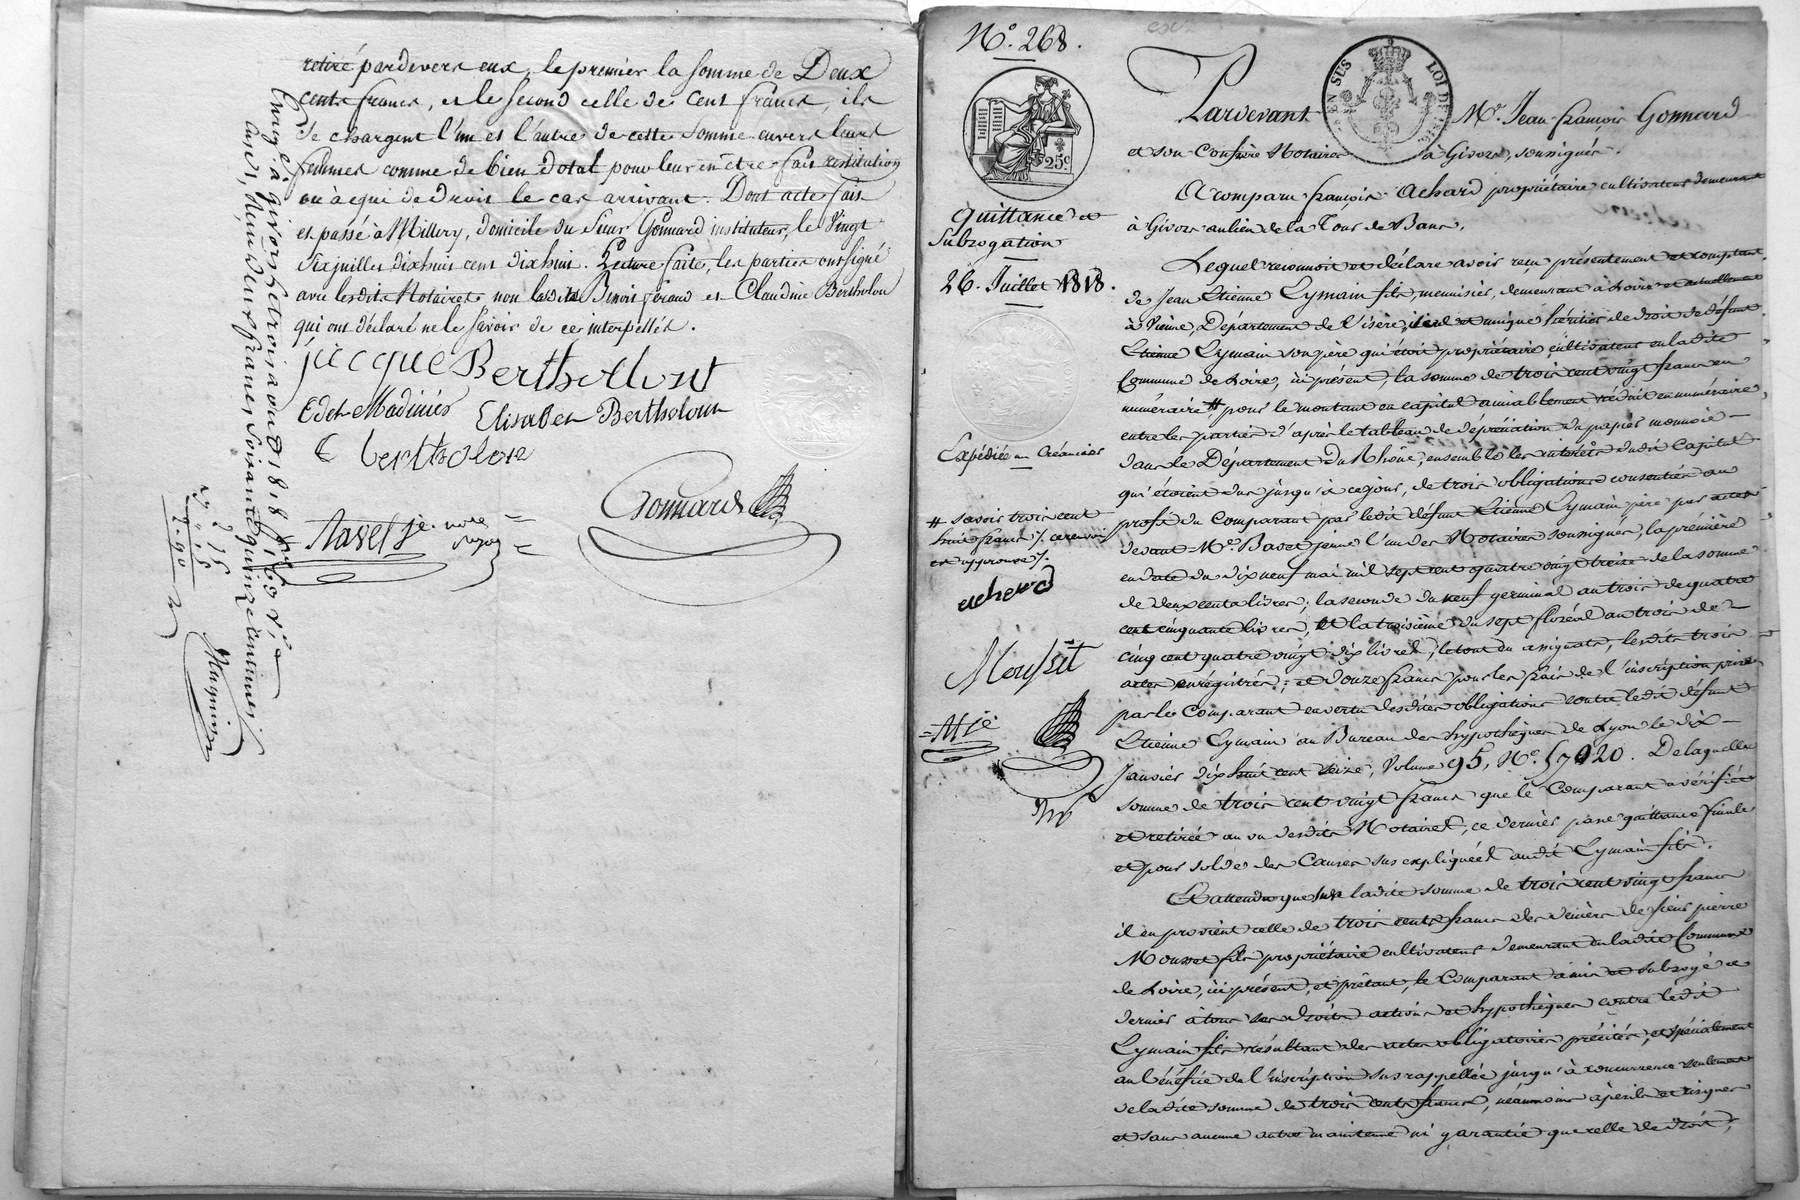 retiré pardevers eux, le premier la somme de Deux
cents francs, et le second celle de Cent francs, ils
se chargent l'un et l'autre de cette somme envers leurs
femmes comme de bien dotal pour leur en être fait restitution
ou à qui de droit le cas arrivant. Dont acte fait
et passé à Millery, domicile du Sieur Gonnard instituteur, le Vingt
Six juillet dixhuit cent dixhuit. Lecture faite, les parties ont signé
avec lesdits Notaires non lesdits Benoit Giraud et Claudine Bertholon
qui ont déclaré ne le savoir de ce interpellés.
jacque Bertholont
Edet Madinier Elisabet Bertholon
C bertholon
Gonnard
Ravet je. notre
Enreg.é à givors le trois août 1818 fo 60 v.o
Magnien
N.o 268.
25c
EN SUS
LOI DE
Quittance et
Subrogation
26. Juillet 1818.
Expédiée au Créancier
# savoir trois cent
huit francs /. ce renvoi
est approuvé /.
achard
Mousset
Pardevant M.e Jean françois Gonnard
et son Confrère Notaires à Givors, soussignés.
A comparu françois Achard propriétaire cultivateur demeurant
à Givors au lieu de la Tour de Bans,
Lequel reconnoit et déclare avoir reçu présentement et comptant
de Jean Etienne Eymain fils, menuisier, demeurant à Loire et actuellement
à Vienne, Département de l'Isère, seul et unique héritier de droit de défunt
Etienne Eymain son père qui étoit propriétaire cultivateur en ladite
Commune de Loire, ici présent, la somme de trois cent vingt francs en
numéraire # pour le montant en capital amiablement réduit en numéraire
entre les parties d'après le tableau de dépréciation du papier monnoie
dans le Département du Rhône, ensemble les intérêts dudit Capital
qui étoient dus jusqu'à ce jour, de trois obligations consenties au
profit du Comparant par ledit défunt Etienne Eymain père par actes
devant M.e Ravet jeune l'un des Notaires soussignés, la première
en date du dix neuf mai mil sept cent quatre vingt treize de la somme
de deux cents livres; la seconde du neuf germinal an trois de quatre
cent cinquante livres, et la troisième du sept floréal an trois de
cinq cent quatre vingt dix livres, le tout en assignats, lesdits trois
actes enregistrés; et douze francs pour les frais de l'inscription prise
par le Comparant en vertu desdites obligations contre ledit défunt
Etienne Eymain au Bureau des hypothèques de Lyon le dix
Janvier dix huit cent seize, Volume 95, N.o 57020. De laquelle
somme de trois cent vingt francs que le Comparant a vérifiée
et retirée au vu desdits Notaires, ce dernier passe quittance finale
et pour solde des Causes sus expliquées audit Eymain fils.
Et attendu que sur ladite somme de trois cent vingt francs
il en provient celle de trois cents francs des deniers de sieur pierre
Mousset fils propriétaire cultivateur demeurant en ladite Commune
de Loire, ici présent, et prêtant, le Comparant a mis et subrogé ce
dernier à tous ses droits actions et hypothèques contre ledit
Eymain fils résultant des actes obligatoires précités, et spécialement
au bénéfice de l'inscription sus rappellée jusqu'à concurrence seulement
de ladite somme de trois cents francs, néanmoins à périls et risques
et sans aucune autre maintenue ni garantie que celle de droit,